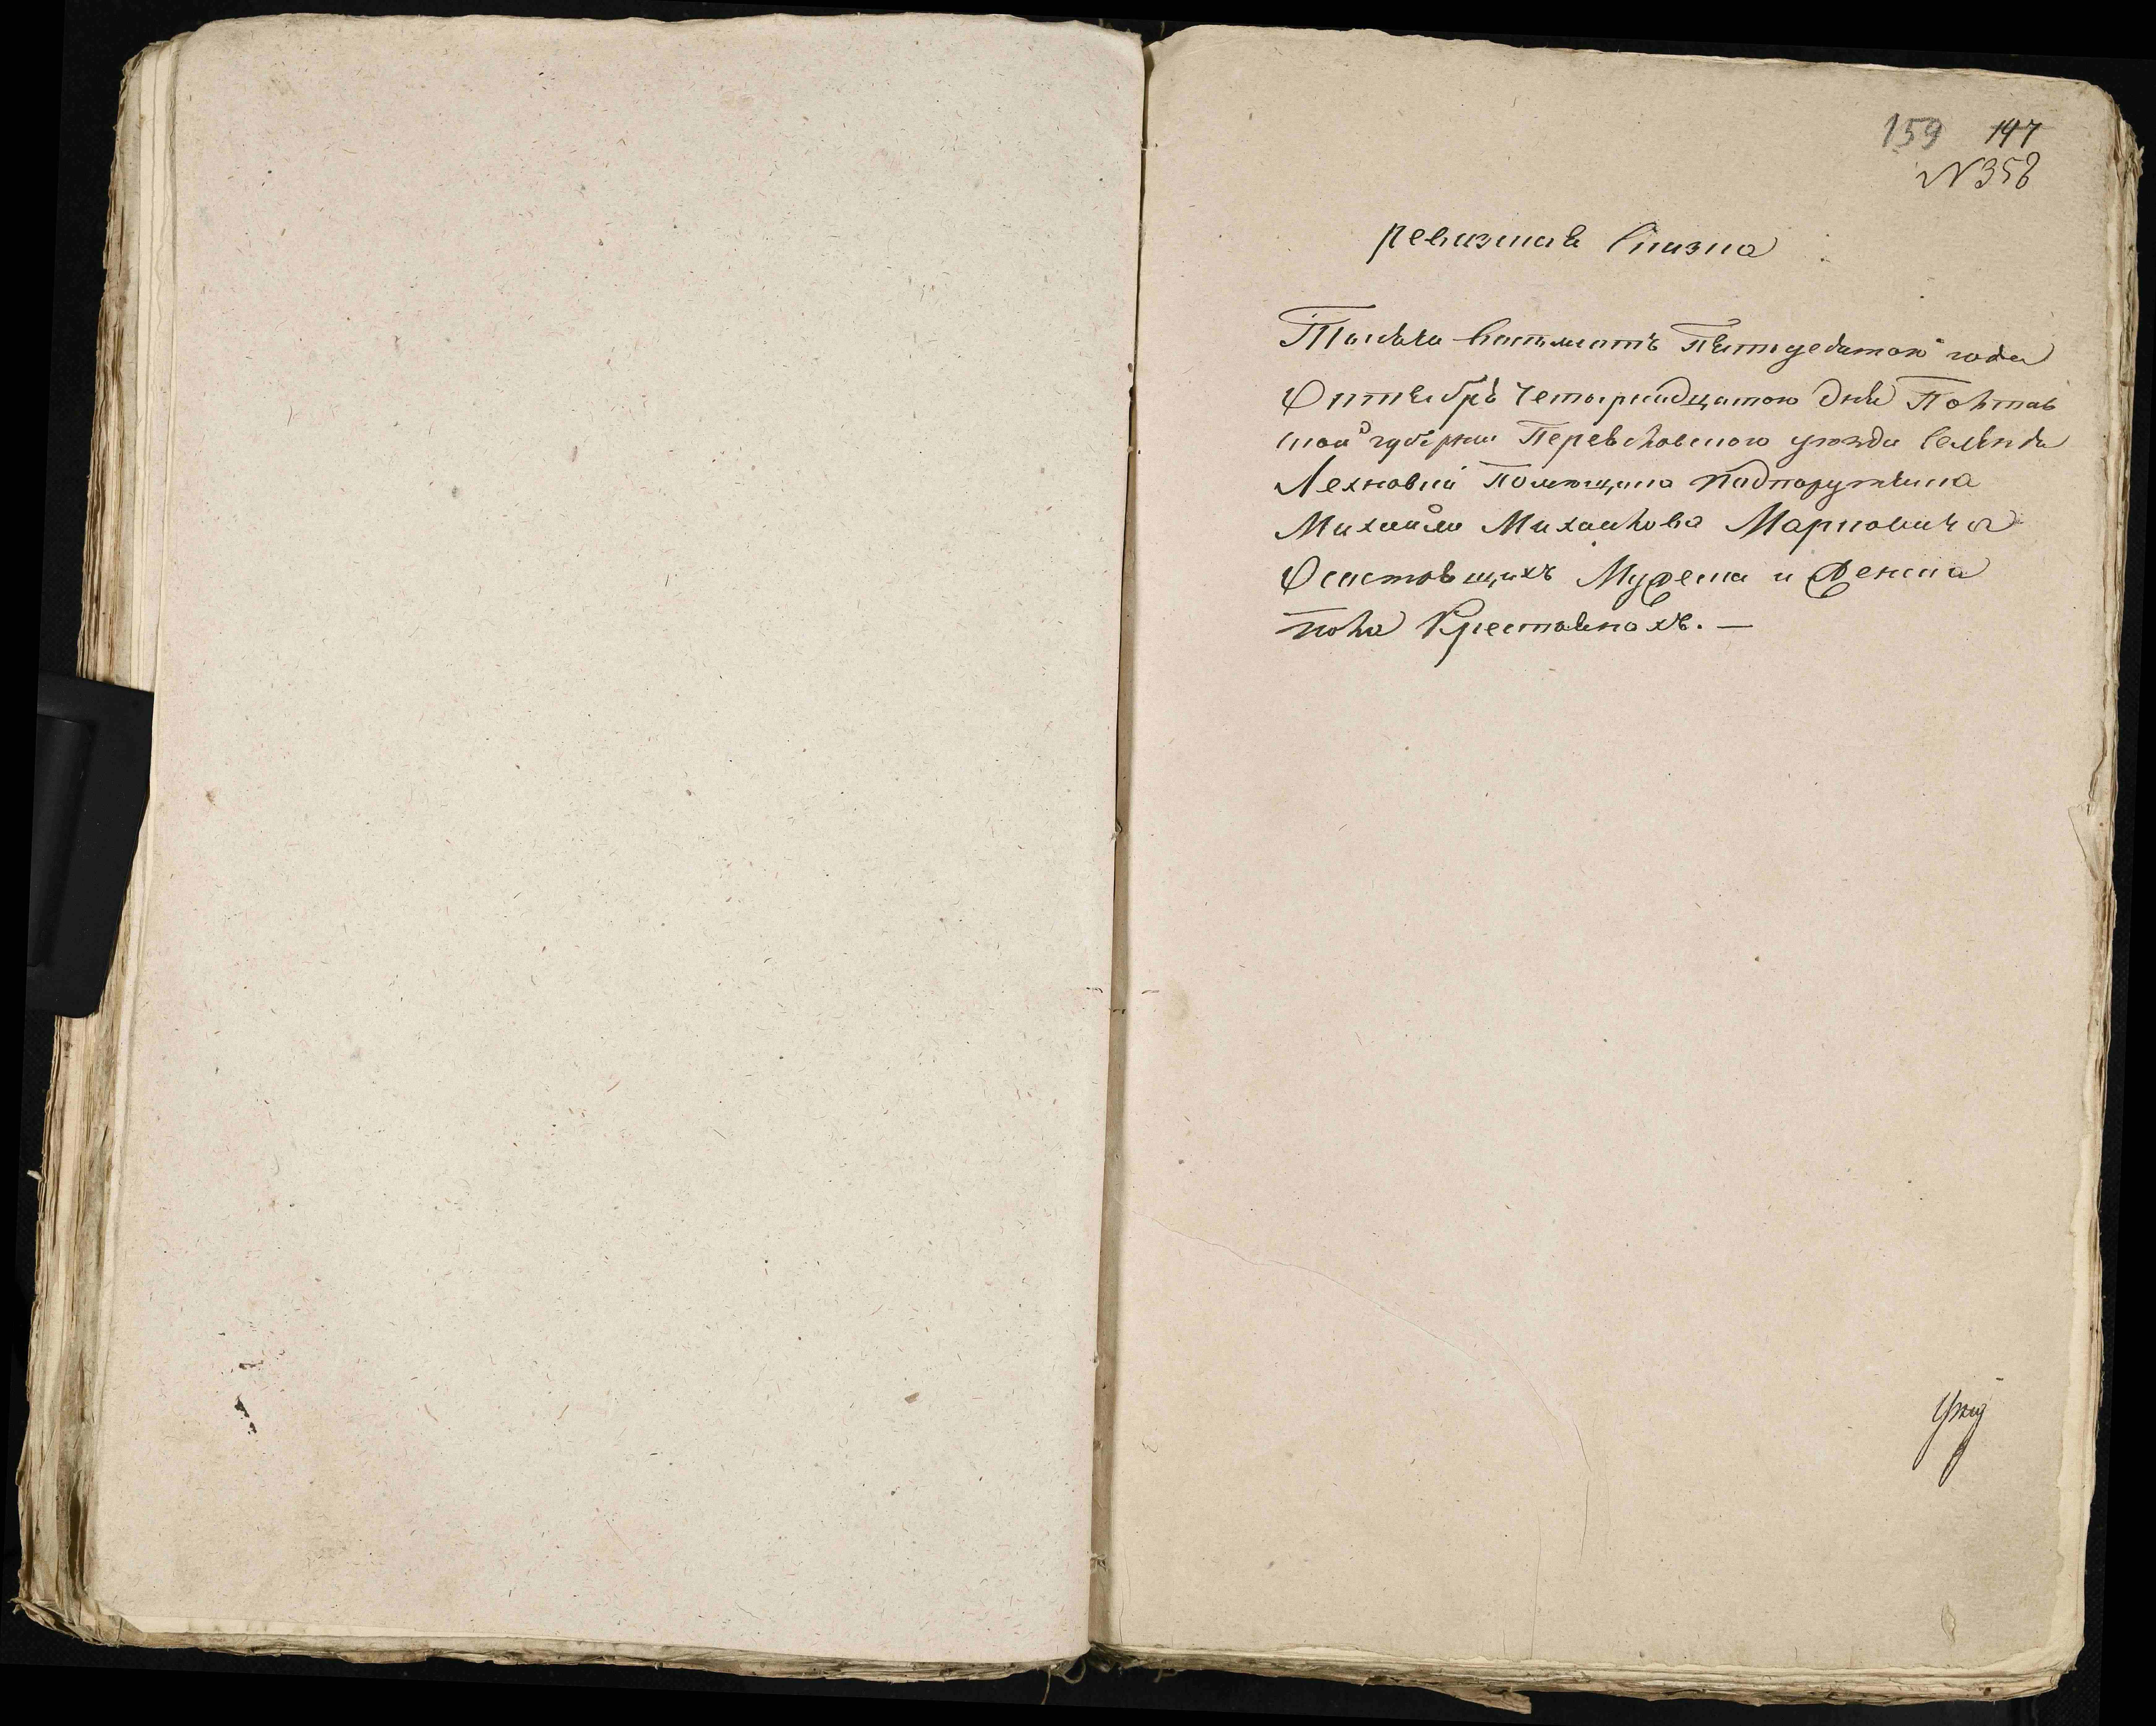 159 147
N 358
Ревизская Сказка
Тысяча восемьсотъ Пятдесятого года
Октября Четырнадцатого дня Полтав
ской губернии Переясловского уезда Селенія
Лехновки Помѣщика Подпоручика
Михайла Михайлова Марковича
О состоящихъ Мужеска и Женска
пола Крестьянахъ. —